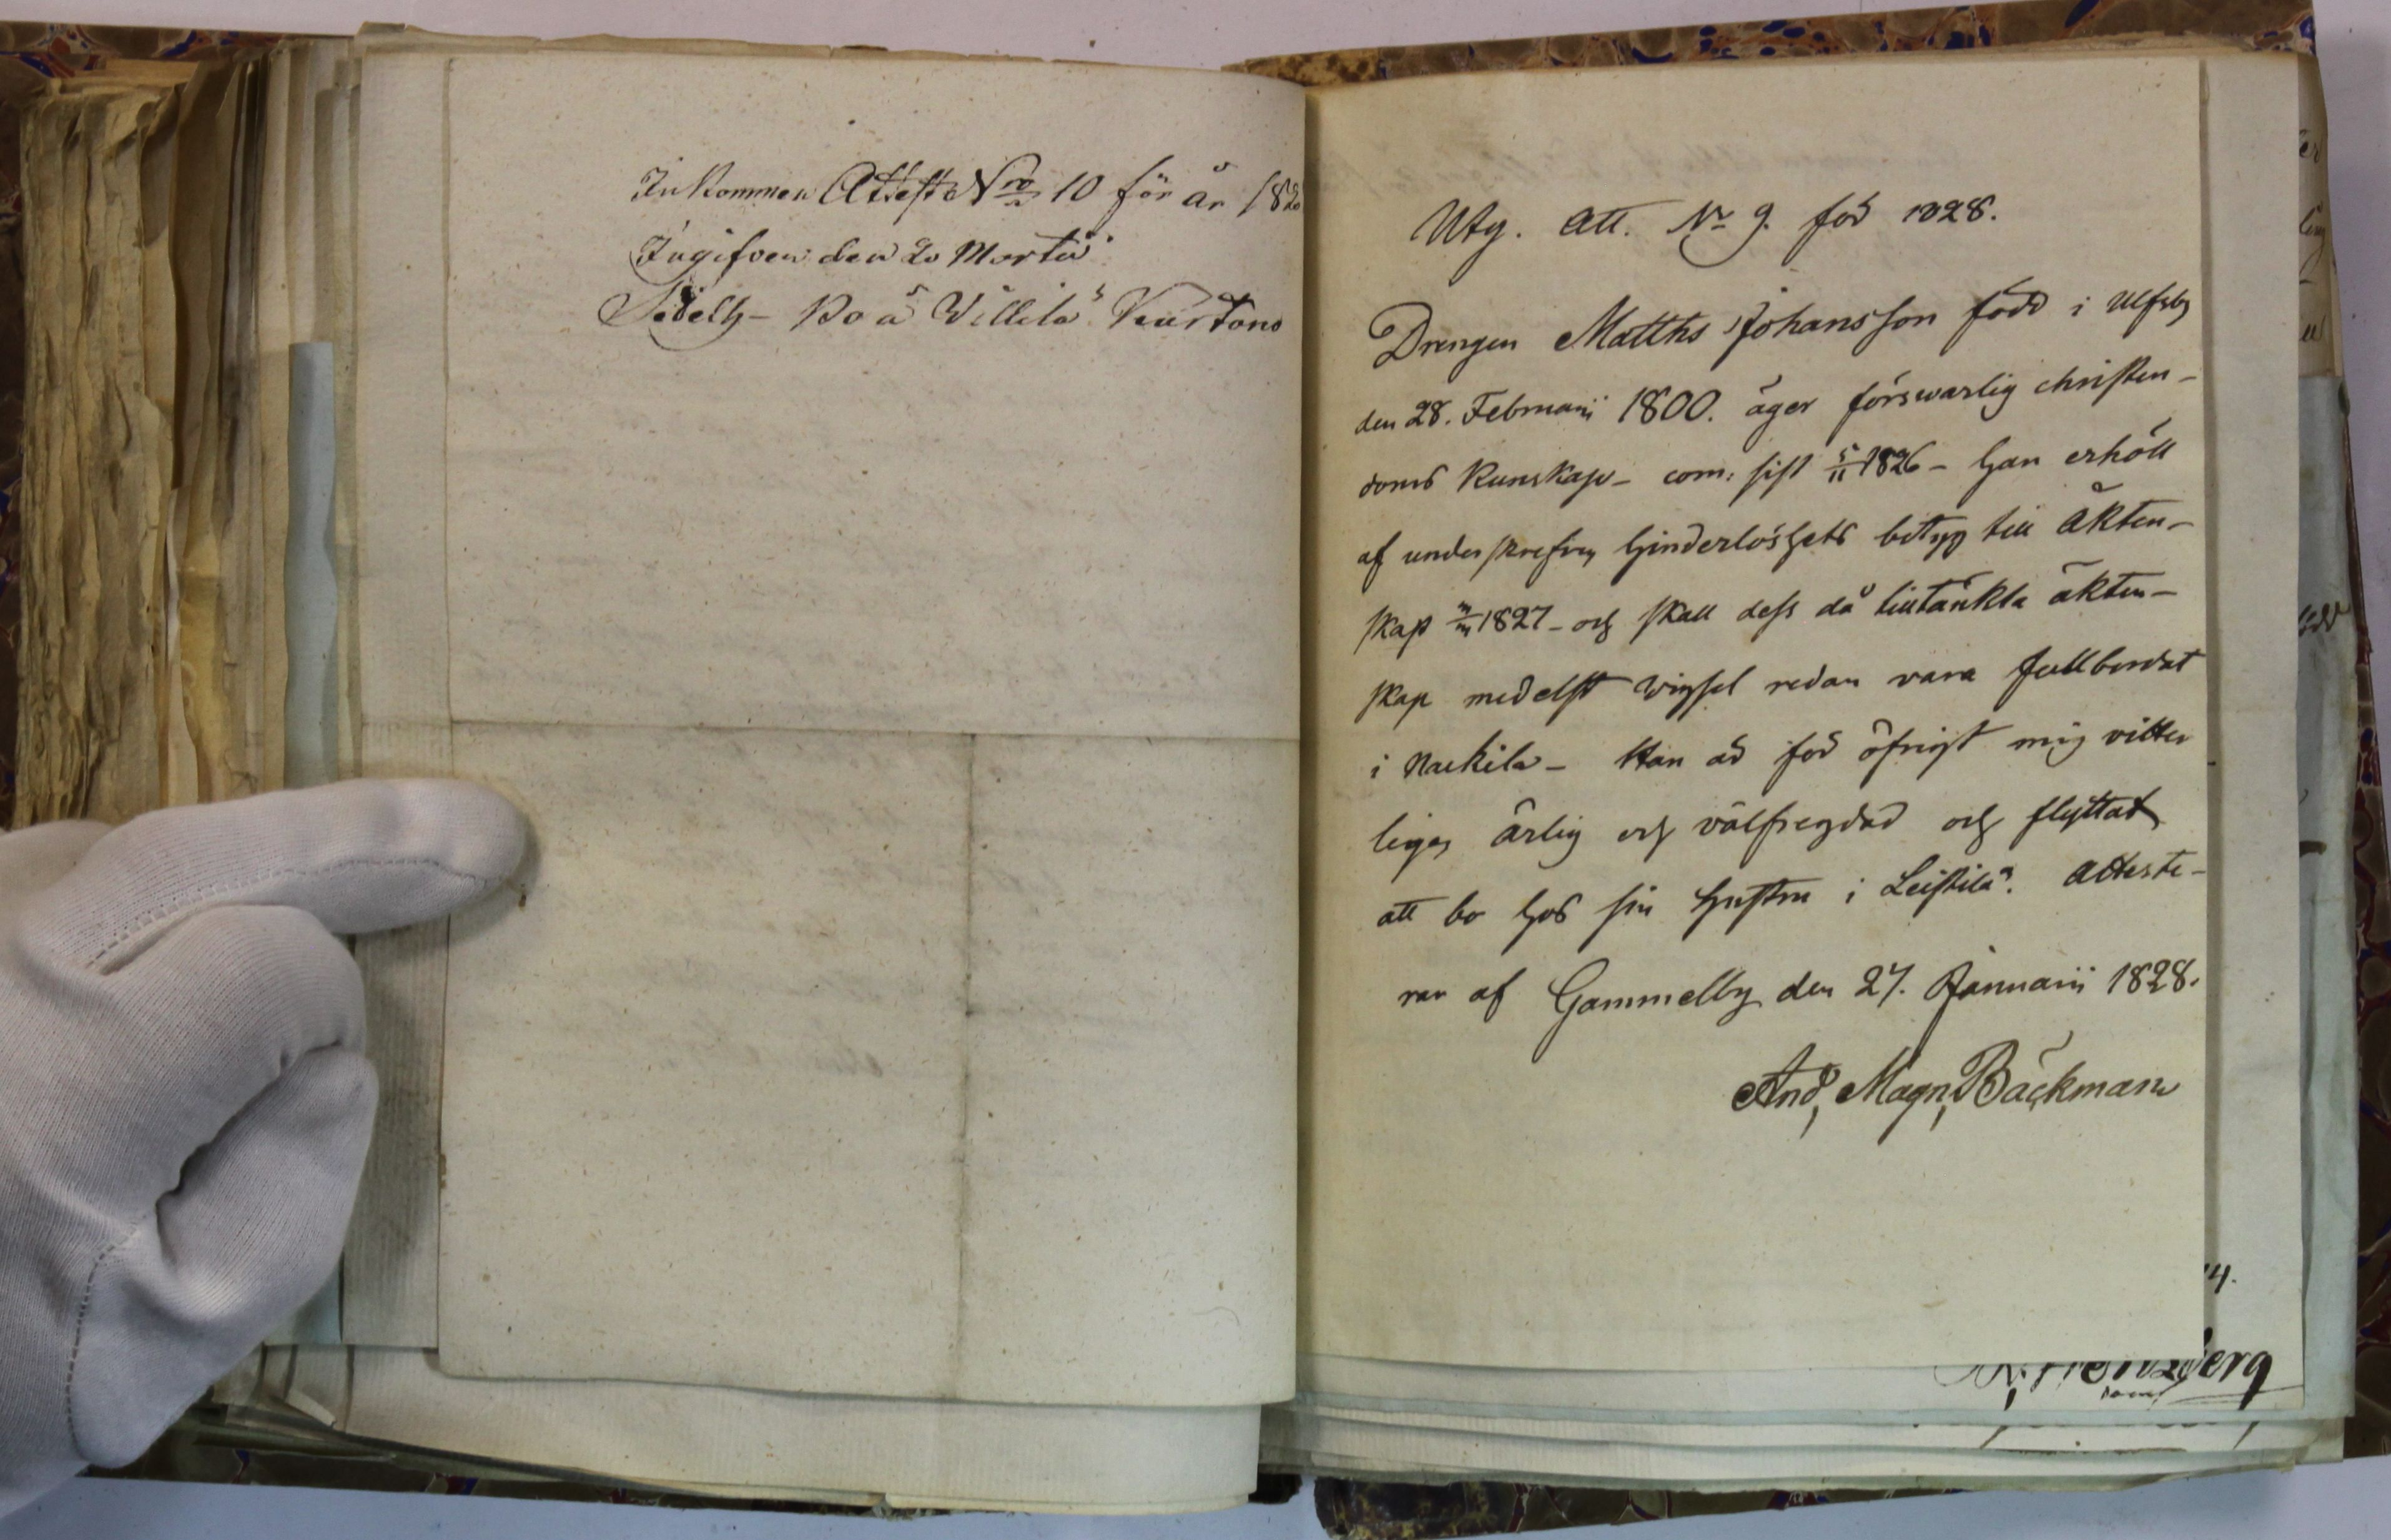 Inkommen Attest Nro 10 för år 182
Ingifven den 20 Martii
Bo å Villilä
Utg. Att. No 9. för 1828.
Drengen Matths Johansson född i Ulfsby
den 28. Februarii 1800. äger förswarlig christen-
doms kunskap - com: sist 5/11 1826 - Han erhöll
af underskrefven hinderlöshets betyg till äkten-
skap 1827 - och skall dess då tilltänkta äkten-
skap medelst wigsel redan vara fullbordat
i Nackila - Han är för öfrigt mig vitter
ligen ärlig och välfregdad och flyttar
att bo hos sin hustru i Leistilä. Atteste-
rar af Gammelby den 27. Januarii 1828.
And, Magn, Bäckman
14.